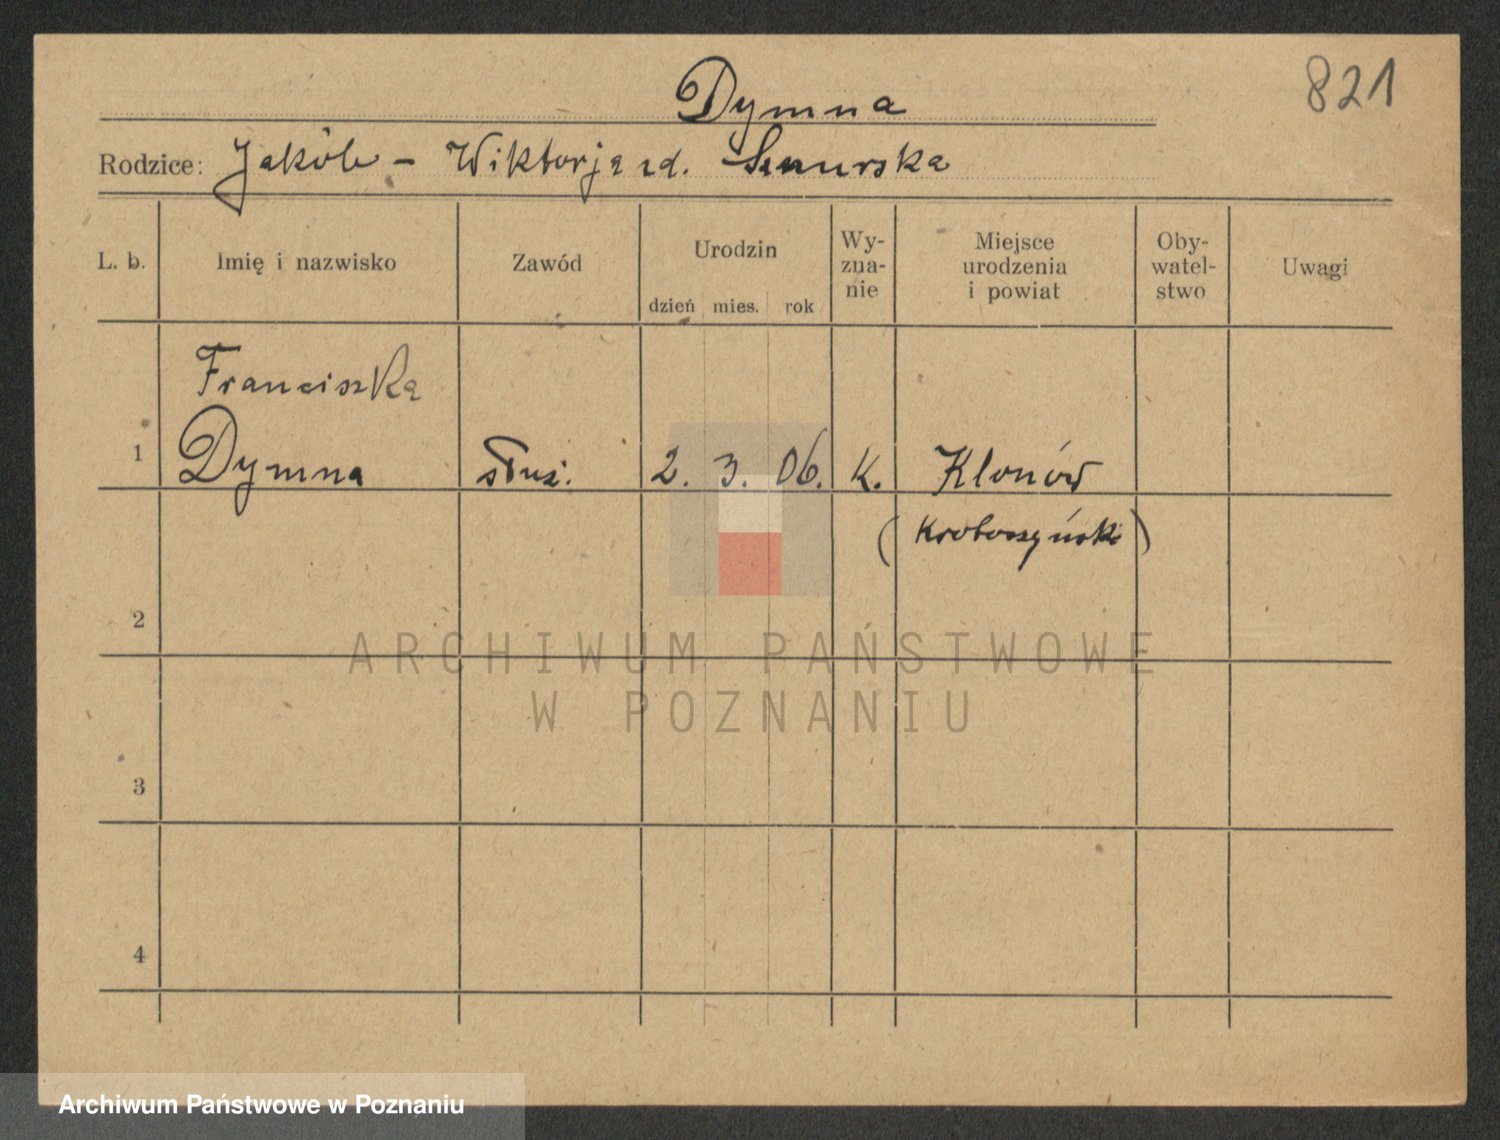 821
Dymna
Rodzice: Jakób - Wiktorja zd.
L. b. Imię i nazwisko Zawód Urodzin Wy- zna- nie Miejsce urodzenia i powiat Oby- watel- stwo Uwagi
dzień mies. rok
Franciszka
1 Dymna służ. 2. 3. 06. K. Klonów
(Krotoszyński)
2
ARCHIWUM PAŃSTWOWE
W POZNANIU
3
4
Archiwum Państwowe w Poznaniu